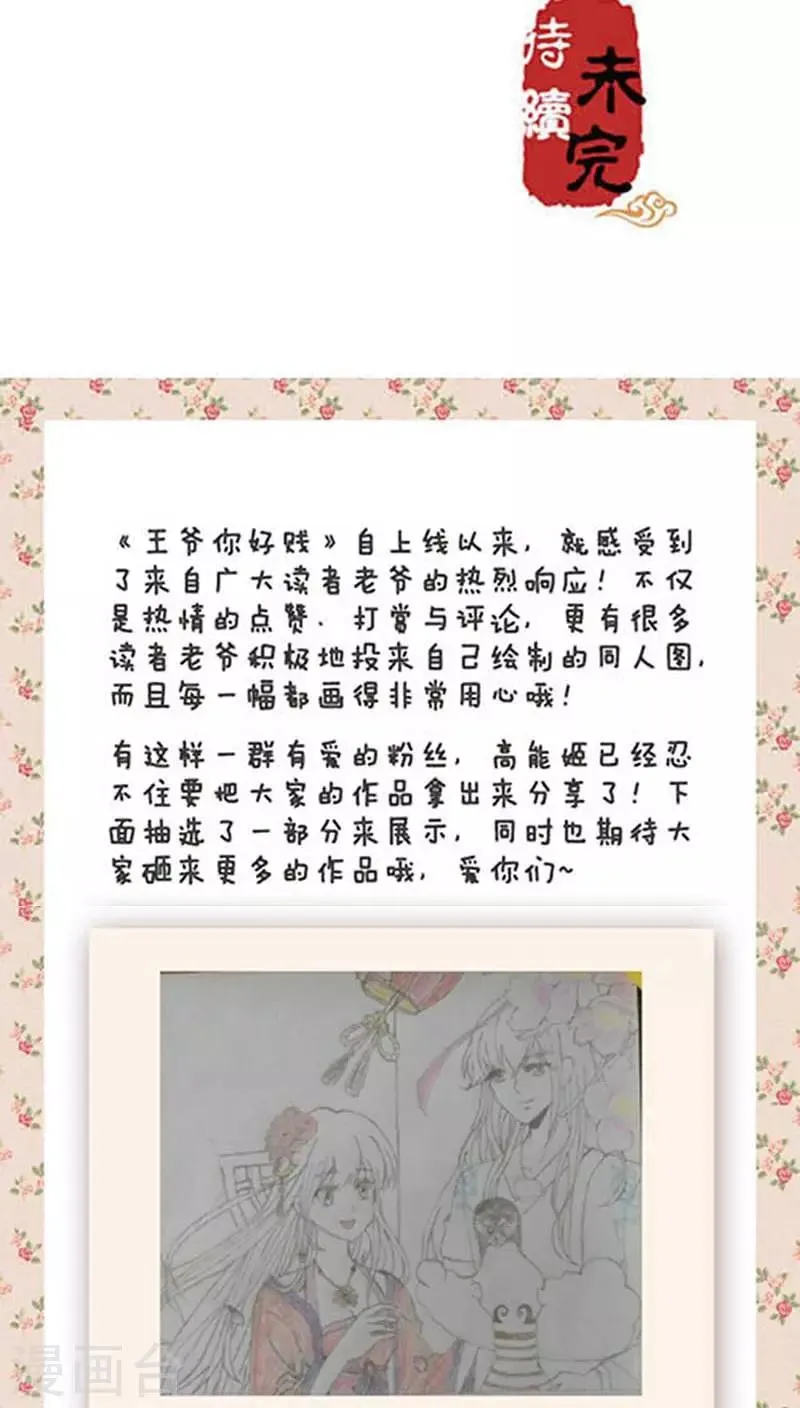 未完
待續
《王爷你好贱》自上线以来，就感受到
了来自广大读者老爷的热烈响应！不仅
是热情的点赞、打赏与评论，更有很多
读者老爷积极地投来自己绘制的同人图，
而且每一幅都画得非常用心哦！
有这样一群有爱的粉丝，高能姬已经忍
不住要把大家的作品拿出来分享了！下
面抽选了一部分来展示，同时也期待大
家砸来更多的作品哦，爱你们~
漫画台